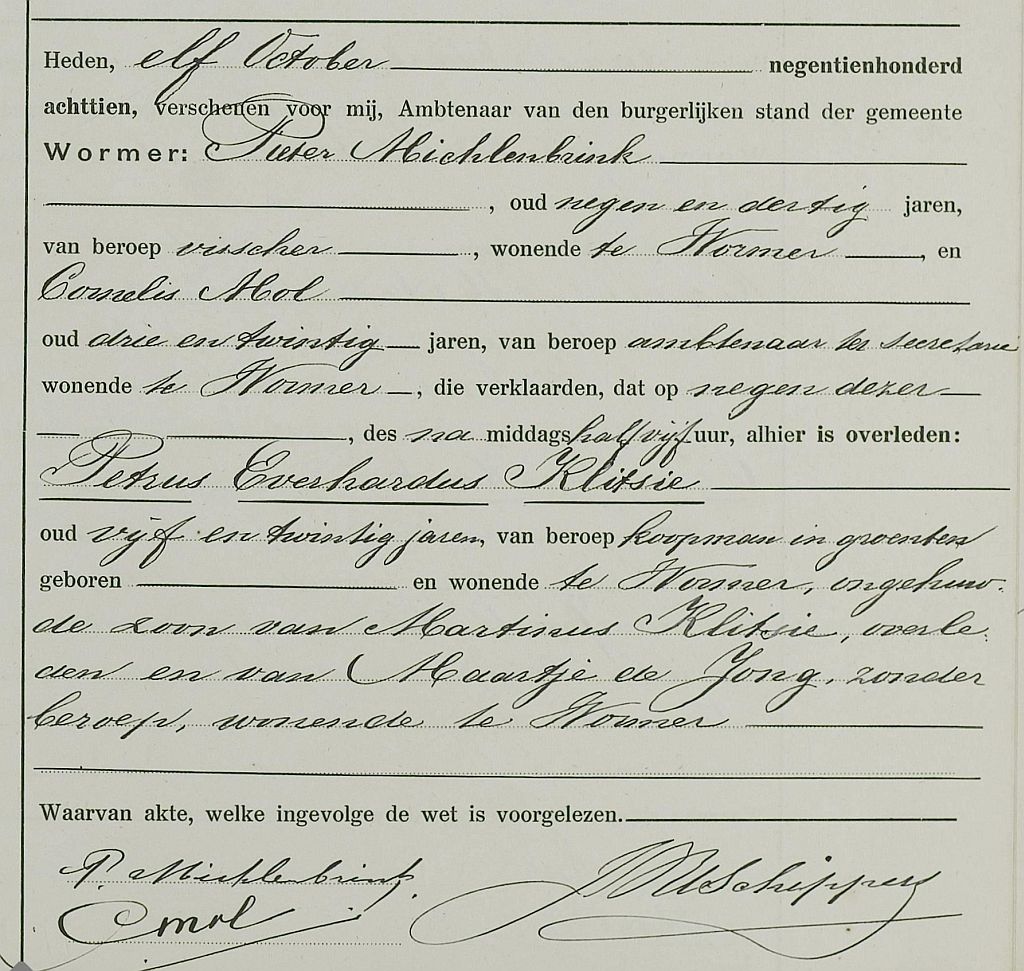 Heden, elf October negentienhonderd
achttien, verschenen voor mij, Ambtenaar van den burgerlijken stand der gemeente
Wormer: Pieter Michlenbrink
, oud negen en dertig jaren,
van beroep visscher , wonende te Wormer , en
Cornelis Mol
oud drie en twintig jaren, van beroep ambtenaar ter secretarie
wonende te Wormer , die verklaarden, dat op negen dezer
, des na middags half vijf uur, alhier is overleden:
Petrus Everhardus Klitsie
oud vijf en twintig jaren, van beroep koopman in groenten
geboren en wonende te Wormer, ongehuw-
de zoon van Martinus Klitsie, overle-
den en van Maartje de Jong, zonder
beroep, wonende te Wormer
Waarvan akte, welke ingevolge de wet is voorgelezen.
P. Michlenbrink
C mol Schippers